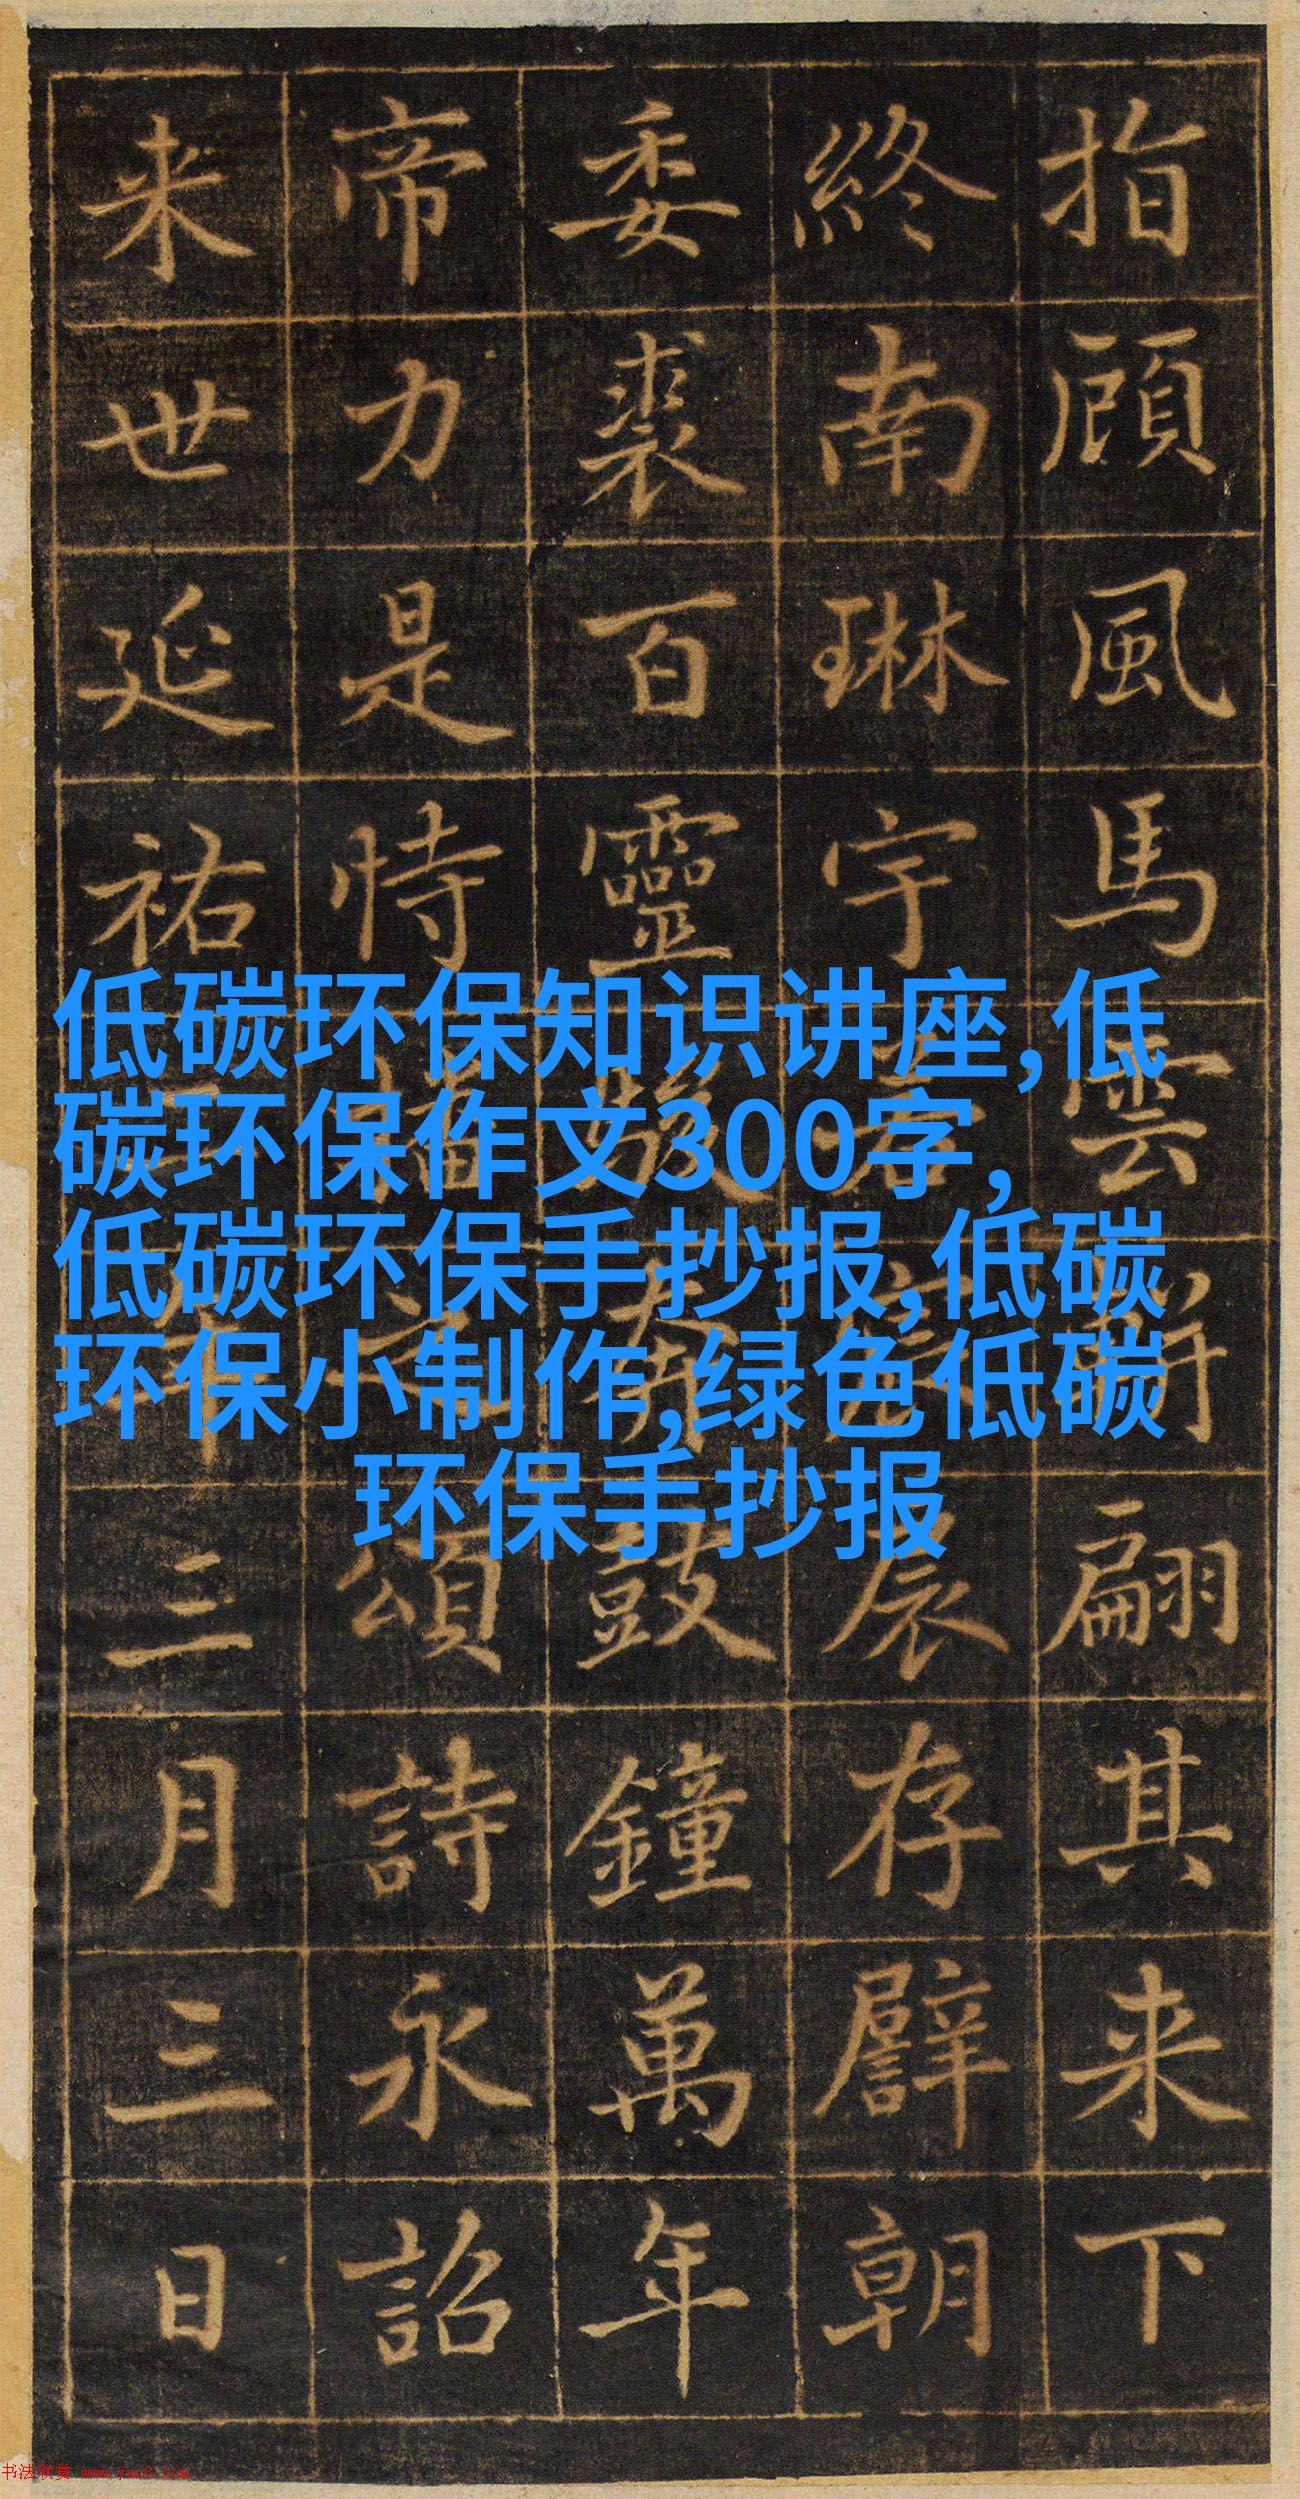 指顧風馬雲翩其来下
終南琳宇存朝
委裘百靈鼓鐘萬年
帝力是恃頌詩永詔
来世延祐年三月三日
低碳环保知识讲座,低
碳环保作文300字，
低碳环保手抄报,低碳
环保小制作,绿色低碳
环保手抄报
书法欣赏 www.yac8.com